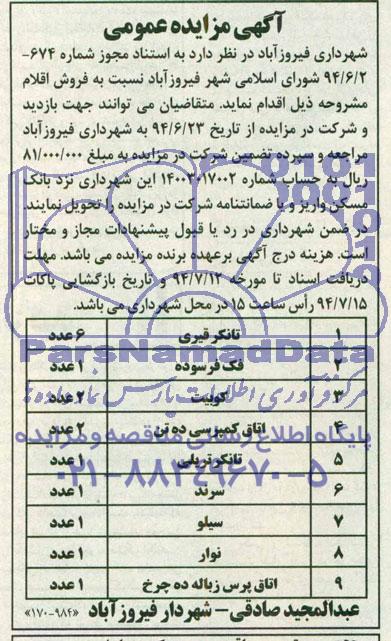 آگهی مزایده عمومی
شهرداری فیروزآباد در نظر دارد به استناد مجوز شماره ۶۷۴-
۹۴/۶/۲ شورای اسلامی شهر فیروزآباد نسبت به فروش اقلام
مشروحه ذیل اقدام نماید. متقاضیان می توانند جهت بازدید
و شرکت در مزایده از تاریخ ۹۴/۶/۲۳ به شهرداری فیروزآباد
مراجعه و سپرده تضمین شرکت در مزایده به مبلغ ۸۱/۰۰۰/۰۰۰
ریال به حساب شماره ۱۴۰۰۳۰۱۷۰۰۲ این شهرداری نزد بانک
مسکن واریز و یا ضمانتنامه شرکت در مزایده را تحویل نمایند.
در ضمن شهرداری در رد یا قبول پیشنهادات مجاز و مختار
است. هزینه درج آگهی برعهده برنده مزایده می باشد. مهلت
دریافت اسناد تا مورخه ۹۴/۷/۱۲ و تاریخ بازگشایی پاکات
۹۴/۷/۱۵ رأس ساعت ۱۵ در محل شهرداری می باشد.
۱ تانکر قیری ۶ عدد
۲ فک فرسوده ۱ عدد
ParsNamadData
۳ کوبیت ۲ عدد
مرکز فرآوری اطلاعات پارس نماد داده ها
۴ اتاق کمپرسی ده تن ۲ عدد
پایگاه اطلاع رسانی مناقصه و مزایده
۵ تانکر تریلی ۱ عدد
۰۲۱-۸۸۳۴۹۶۷۰-۵
۶ سرند ۱ عدد
۷ سیلو ۱ عدد
۸ نوار ۱ عدد
۹ اتاق پرس زباله ده چرخ ۱ عدد
عبدالمجید صادقی - شهردار فیروزآباد «۹۸۴-۱۷۰»